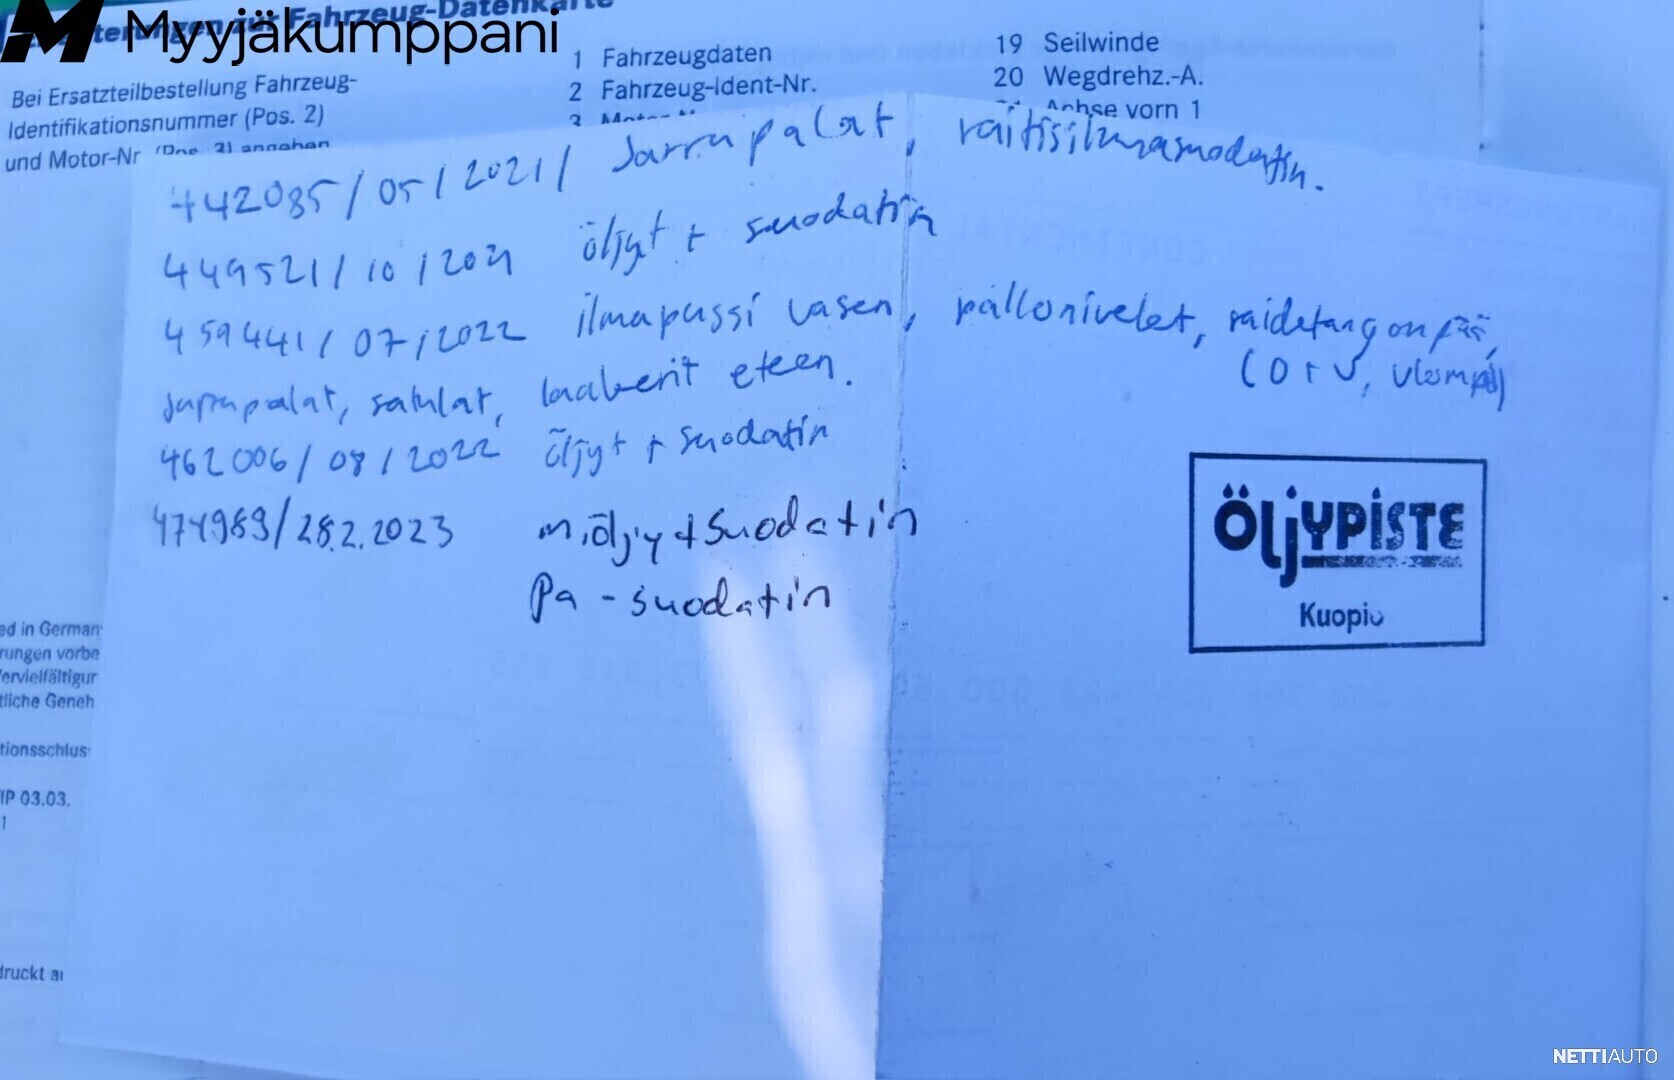 Myyjäkumppani
Fahrzeug-Datenkarte
Bei Ersatzteilbestellung Fahrzeug-
Identifikationsnummer (Pos. 2)
und Motor-Nr (Pos. 3) angeben
1 Fahrzeugdaten
2 Fahrzeug-Ident-Nr.
3
19 Seilwinde
20 Wegdrehz.-A.
Achse vorn 1
442085/05/2021/ Jarrupalat, raitisilmasuodatin.
449521/10/2021 öljyt + suodatin
459441/07/2022 ilmapussi vasen, pallonivelet, raidetangonpää,
(O + V, ulompi)
jarrupalat, satulat, laakerit eteen.
462006/08/2022 öljyt + suodatin
474989/28.2.2023 m.öljy + suodatin
Pa - suodatin
ÖljYPISTE
Kuopio
ed in German
rungen vorbe
ervielfältigur
tliche Geneh
tionsschlus
IP 03.03.
1
druckt au
NETTIAUTO